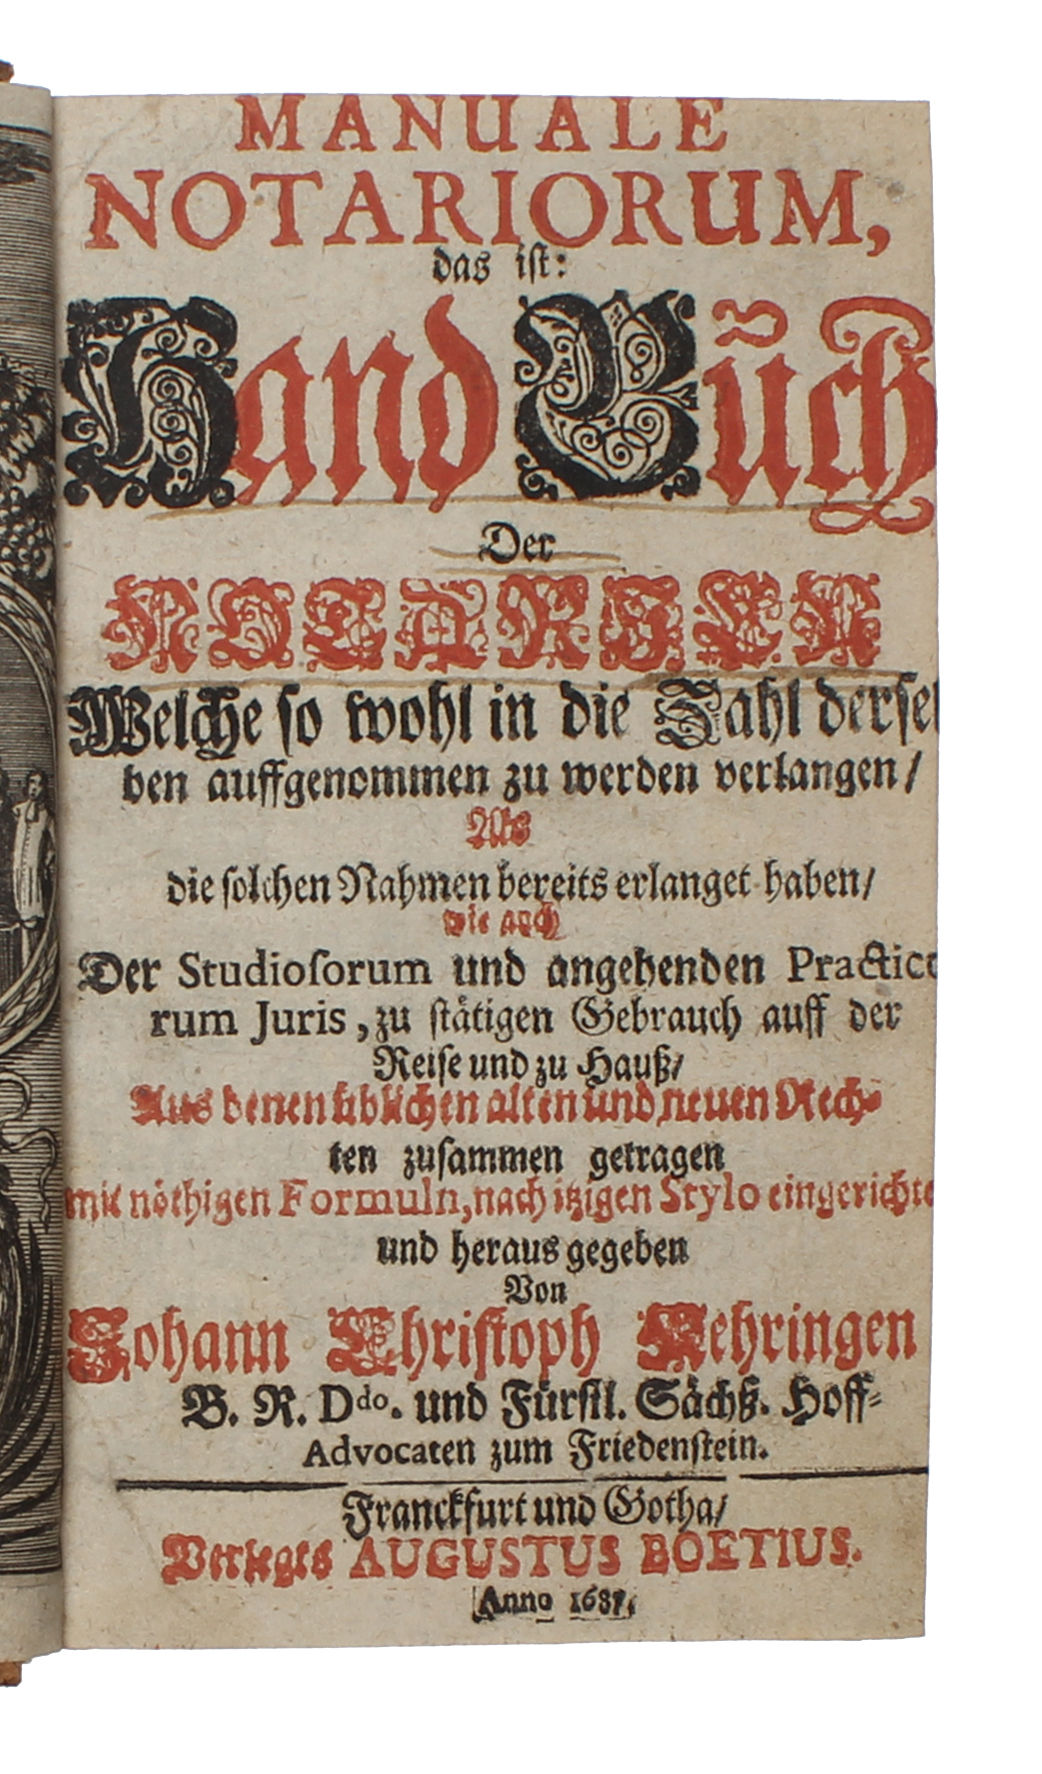 MANUALE
NOTARIORUM,
das iſt:
Hand Bũch
Der
NOTARIEN
Welche ſo wohl in die Zahl derſel
ben auffgenommen zu werden verlangen/
Als
die ſolchen Nahmen bereits erlanget haben/
wie auch
Der Studioſorum und angehenden Practico
rum Juris, zu ſtätigen Gebrauch auff der
Reiſe und zu Hauß/
Aus denen üblichen alten und neuen Rech-
ten zuſammen getragen
mit nöthigen Formuln, nach itzigen Stylo eingerichte
und heraus gegeben
Von
Johann Chriſtoph Nehringen
B. R. Ddo. und Fürſtl. Sächß. Hoff-
Advocaten zum Friedenſtein.
Franckfurt und Gotha/
Verlegts AUGUSTUS BOETIUS.
Anno 1687.